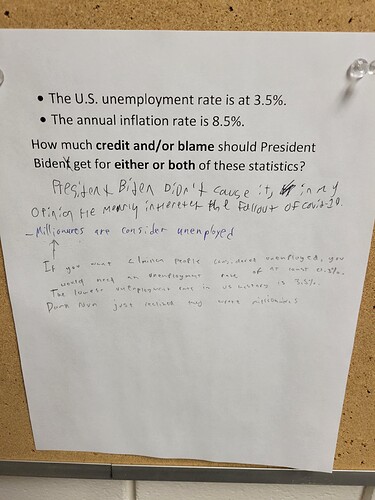 • The U.S. unemployment rate is at 3.5%.
• The annual inflation rate is 8.5%.
How much credit and/or blame should President
Biden get for either or both of these statistics?
Biten Didn't cause it, in my
opinion He the Fallout of covid-19.
- Millionures are consider unemployed
If you want 1 million people considered unemployed, you
would need an unemployment rate of at least
The lowest unemployment rate in US history is 3.5%.
just realized they wrote millionires